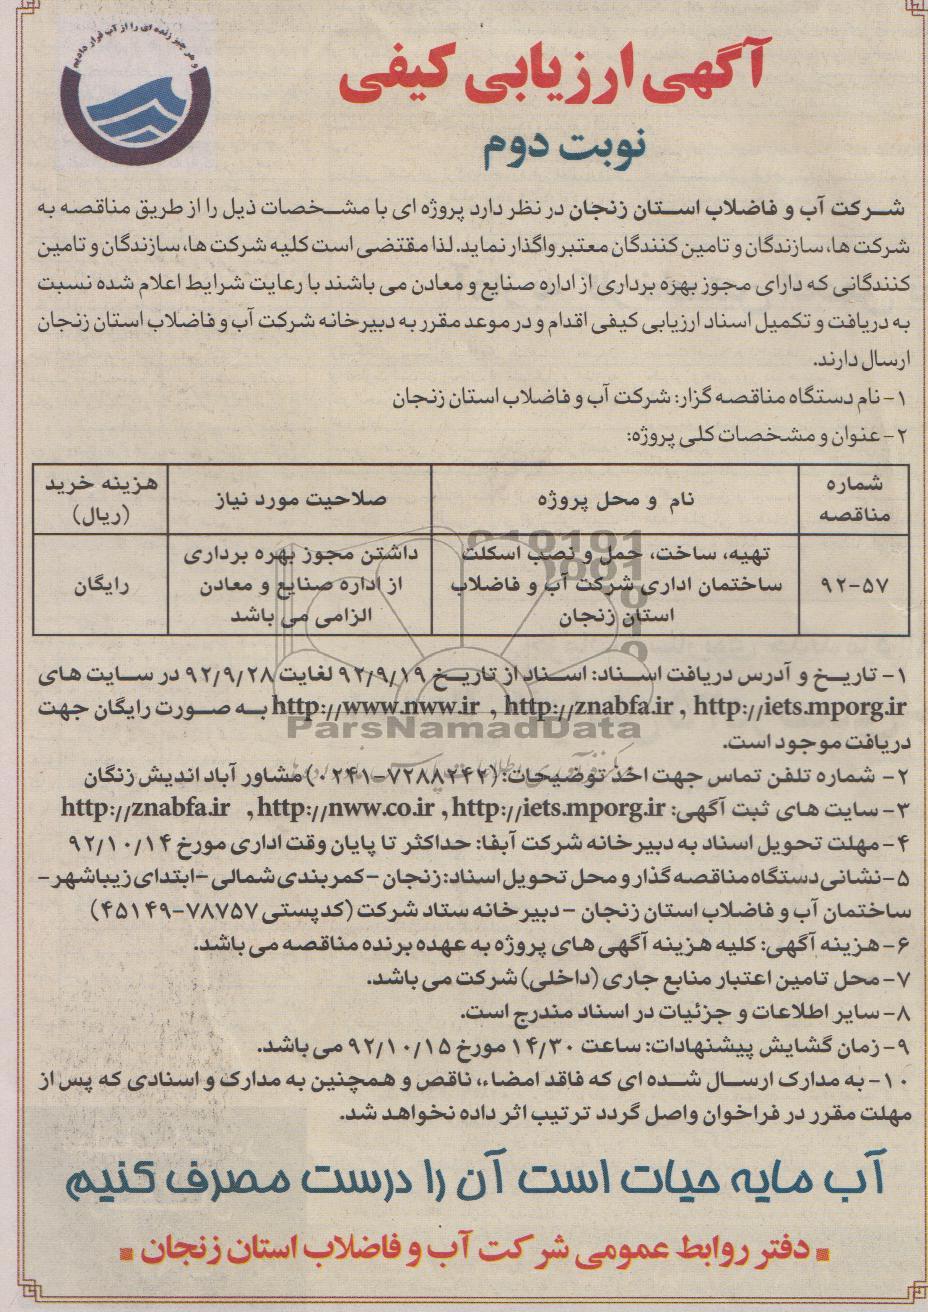 و هر چیز زنده ای را از آب قرار دادیم
آگهی ارزیابی کیفی
نوبت دوم
شرکت آب و فاضلاب استان زنجان در نظر دارد پروژه ای با مشخصات ذیل را از طریق مناقصه به
شرکت ها، سازندگان و تامین کنندگان معتبر واگذار نماید. لذا مقتضی است کلیه شرکت ها، سازندگان و تامین
کنندگانی که دارای مجوز بهره برداری از اداره صنایع و معادن می باشند با رعایت شرایط اعلام شده نسبت
به دریافت و تکمیل اسناد ارزیابی کیفی اقدام و در موعد مقرر به دبیرخانه شرکت آب و فاضلاب استان زنجان
ارسال دارند.
۱- نام دستگاه مناقصه گزار: شرکت آب و فاضلاب استان زنجان
۲- عنوان و مشخصات کلی پروژه:
شماره مناقصه
نام و محل پروژه
صلاحیت مورد نیاز
هزینه خرید (ریال)
۹۲-۵۷
تهیه، ساخت، حمل و نصب اسکلت
ساختمان اداری شرکت آب و فاضلاب
استان زنجان
داشتن مجوز بهره برداری
از اداره صنایع و معادن
الزامی می باشد
رایگان
۱- تاریخ و آدرس دریافت اسناد: اسناد از تاریخ ۹۲/۹/۱۹ لغایت ۹۲/۹/۲۸ در سایت های
http://www.nww.ir , http://znabfa.ir , http://iets.mporg.ir به صورت رایگان جهت
دریافت موجود است.
ParsNamadData
۲- شماره تلفن تماس جهت اخذ توضیحات: (۷۲۸۸۲۴۲-۰۲۴۱) مشاور آباد اندیش زنگان
۳- سایت های ثبت آگهی: http://znabfa.ir , http://nww.co.ir , http://iets.mporg.ir
۴- مهلت تحویل اسناد به دبیرخانه شرکت آبفا: حداکثر تا پایان وقت اداری مورخ ۹۲/۱۰/۱۴
۵- نشانی دستگاه مناقصه گذار و محل تحویل اسناد: زنجان - کمربندی شمالی - ابتدای زیباشهر -
ساختمان آب و فاضلاب استان زنجان - دبیرخانه ستاد شرکت (کدپستی ۷۸۷۵۷-۴۵۱۴۹)
۶- هزینه آگهی: کلیه هزینه آگهی های پروژه به عهده برنده مناقصه می باشد.
۷- محل تامین اعتبار منابع جاری (داخلی) شرکت می باشد.
۸- سایر اطلاعات و جزئیات در اسناد مندرج است.
۹- زمان گشایش پیشنهادات: ساعت ۱۴/۳۰ مورخ ۹۲/۱۰/۱۵ می باشد.
۱۰- به مدارک ارسال شده ای که فاقد امضاء، ناقص و همچنین به مدارک و اسنادی که پس از
مهلت مقرر در فراخوان واصل گردد ترتیب اثر داده نخواهد شد.
آب مایه حیات است آن را درست مصرف کنیم
دفتر روابط عمومی شرکت آب و فاضلاب استان زنجان